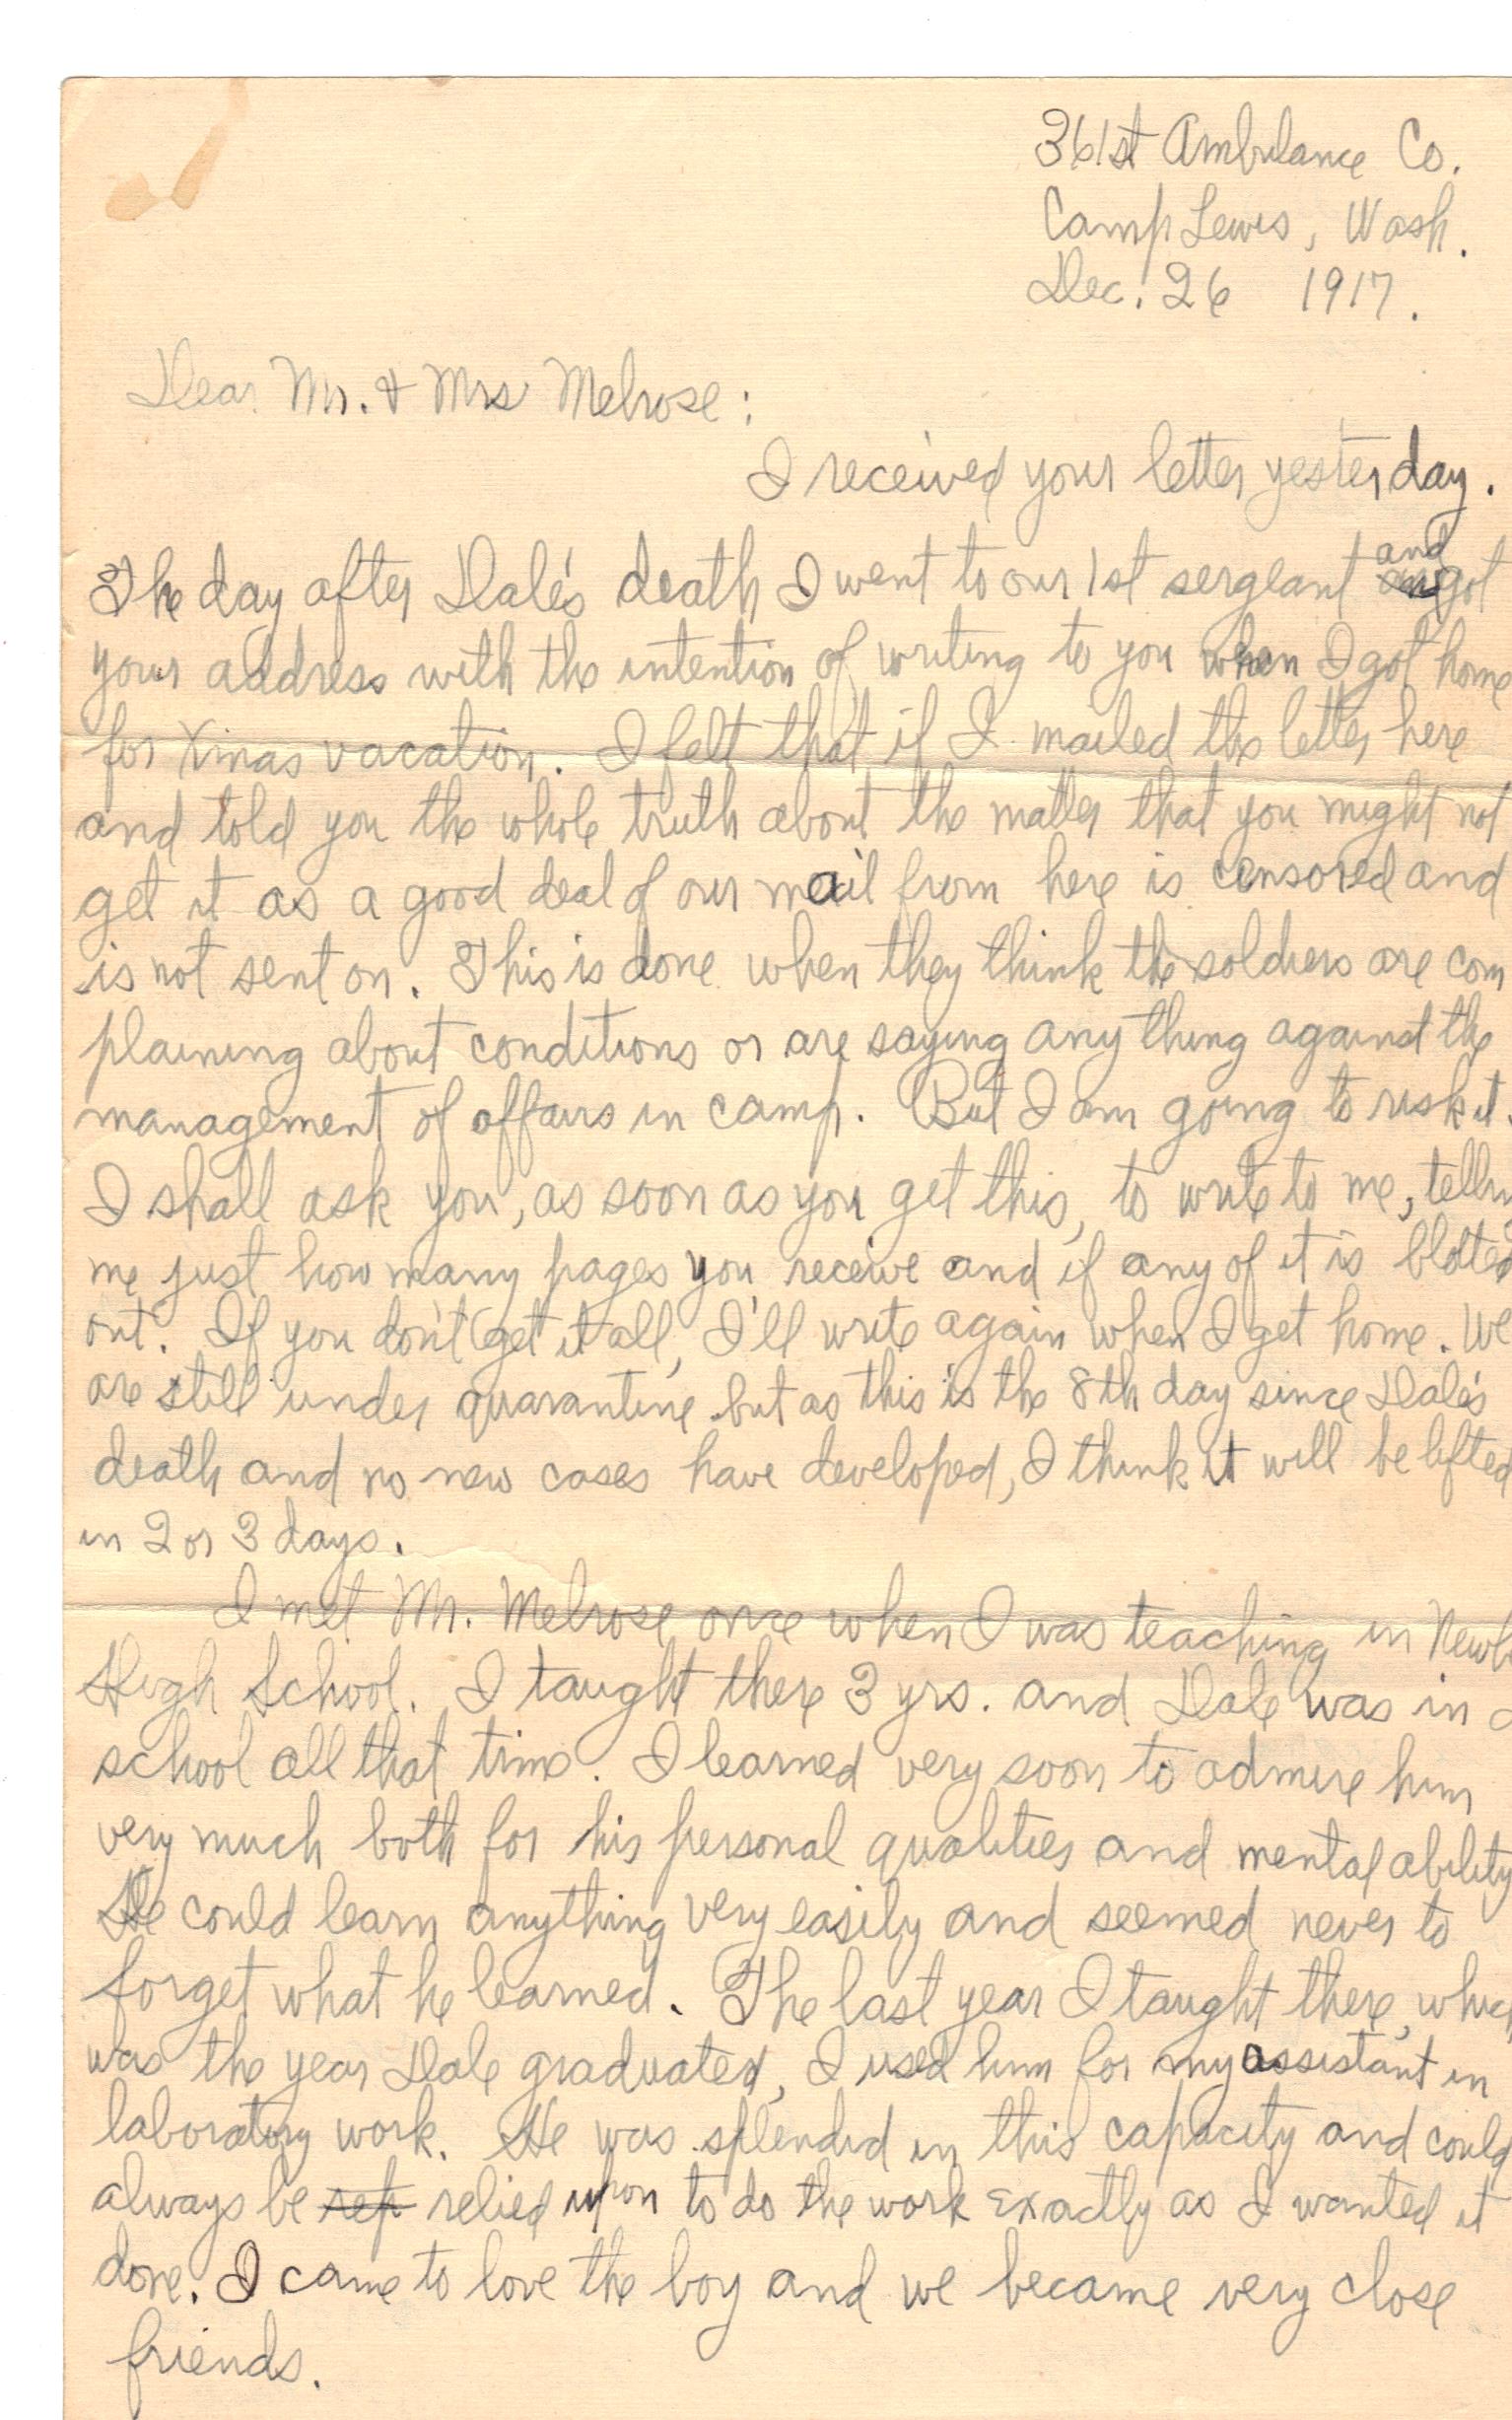 361st Ambulance Co.
Camp Lewis, Wash.
Dec. 26 1917.
Dear Mr. & Mrs Melrose:
I received your letter yesterday.
The day after Dale's death I went to our 1st sergeant and got
your address with the intention of writing to you when I got home
for Xmas vacation. I felt that if I mailed the letter here
and told you the whole truth about the matter that you might not
get it as a good deal of our mail from here is censored and
is not sent on. This is done when they think the soldiers are com
plaining about conditions or are saying anything against the
management of affairs in camp. But I am going to risk it.
I shall ask you, as soon as you get this, to write to me, tellin
me just how many pages you receive and if any of it is blotted
out. If you don't get it all, I'll write again when I get home. We
are still under quarantine but as this is the 8th day since Dale's
death and no new cases have developed, I think it will be lifted
in 2 or 3 days.
I met Mr. Melrose once when I was teaching in Newb
High School. I taught there 3 yrs. and Dale was in
school all that time. I learned very soon to admire him
very much both for his personal qualities and mental ability
He could learn anything very easily and seemed never to
forget what he learned. The last year I taught there, whic
was the year Dale graduated, I used him for my assistant in
laboratory work. He was splendid in this capacity and could
always be rep relied upon to do the work exactly as I wanted it
done. I came to love the boy and we became very close
friends.